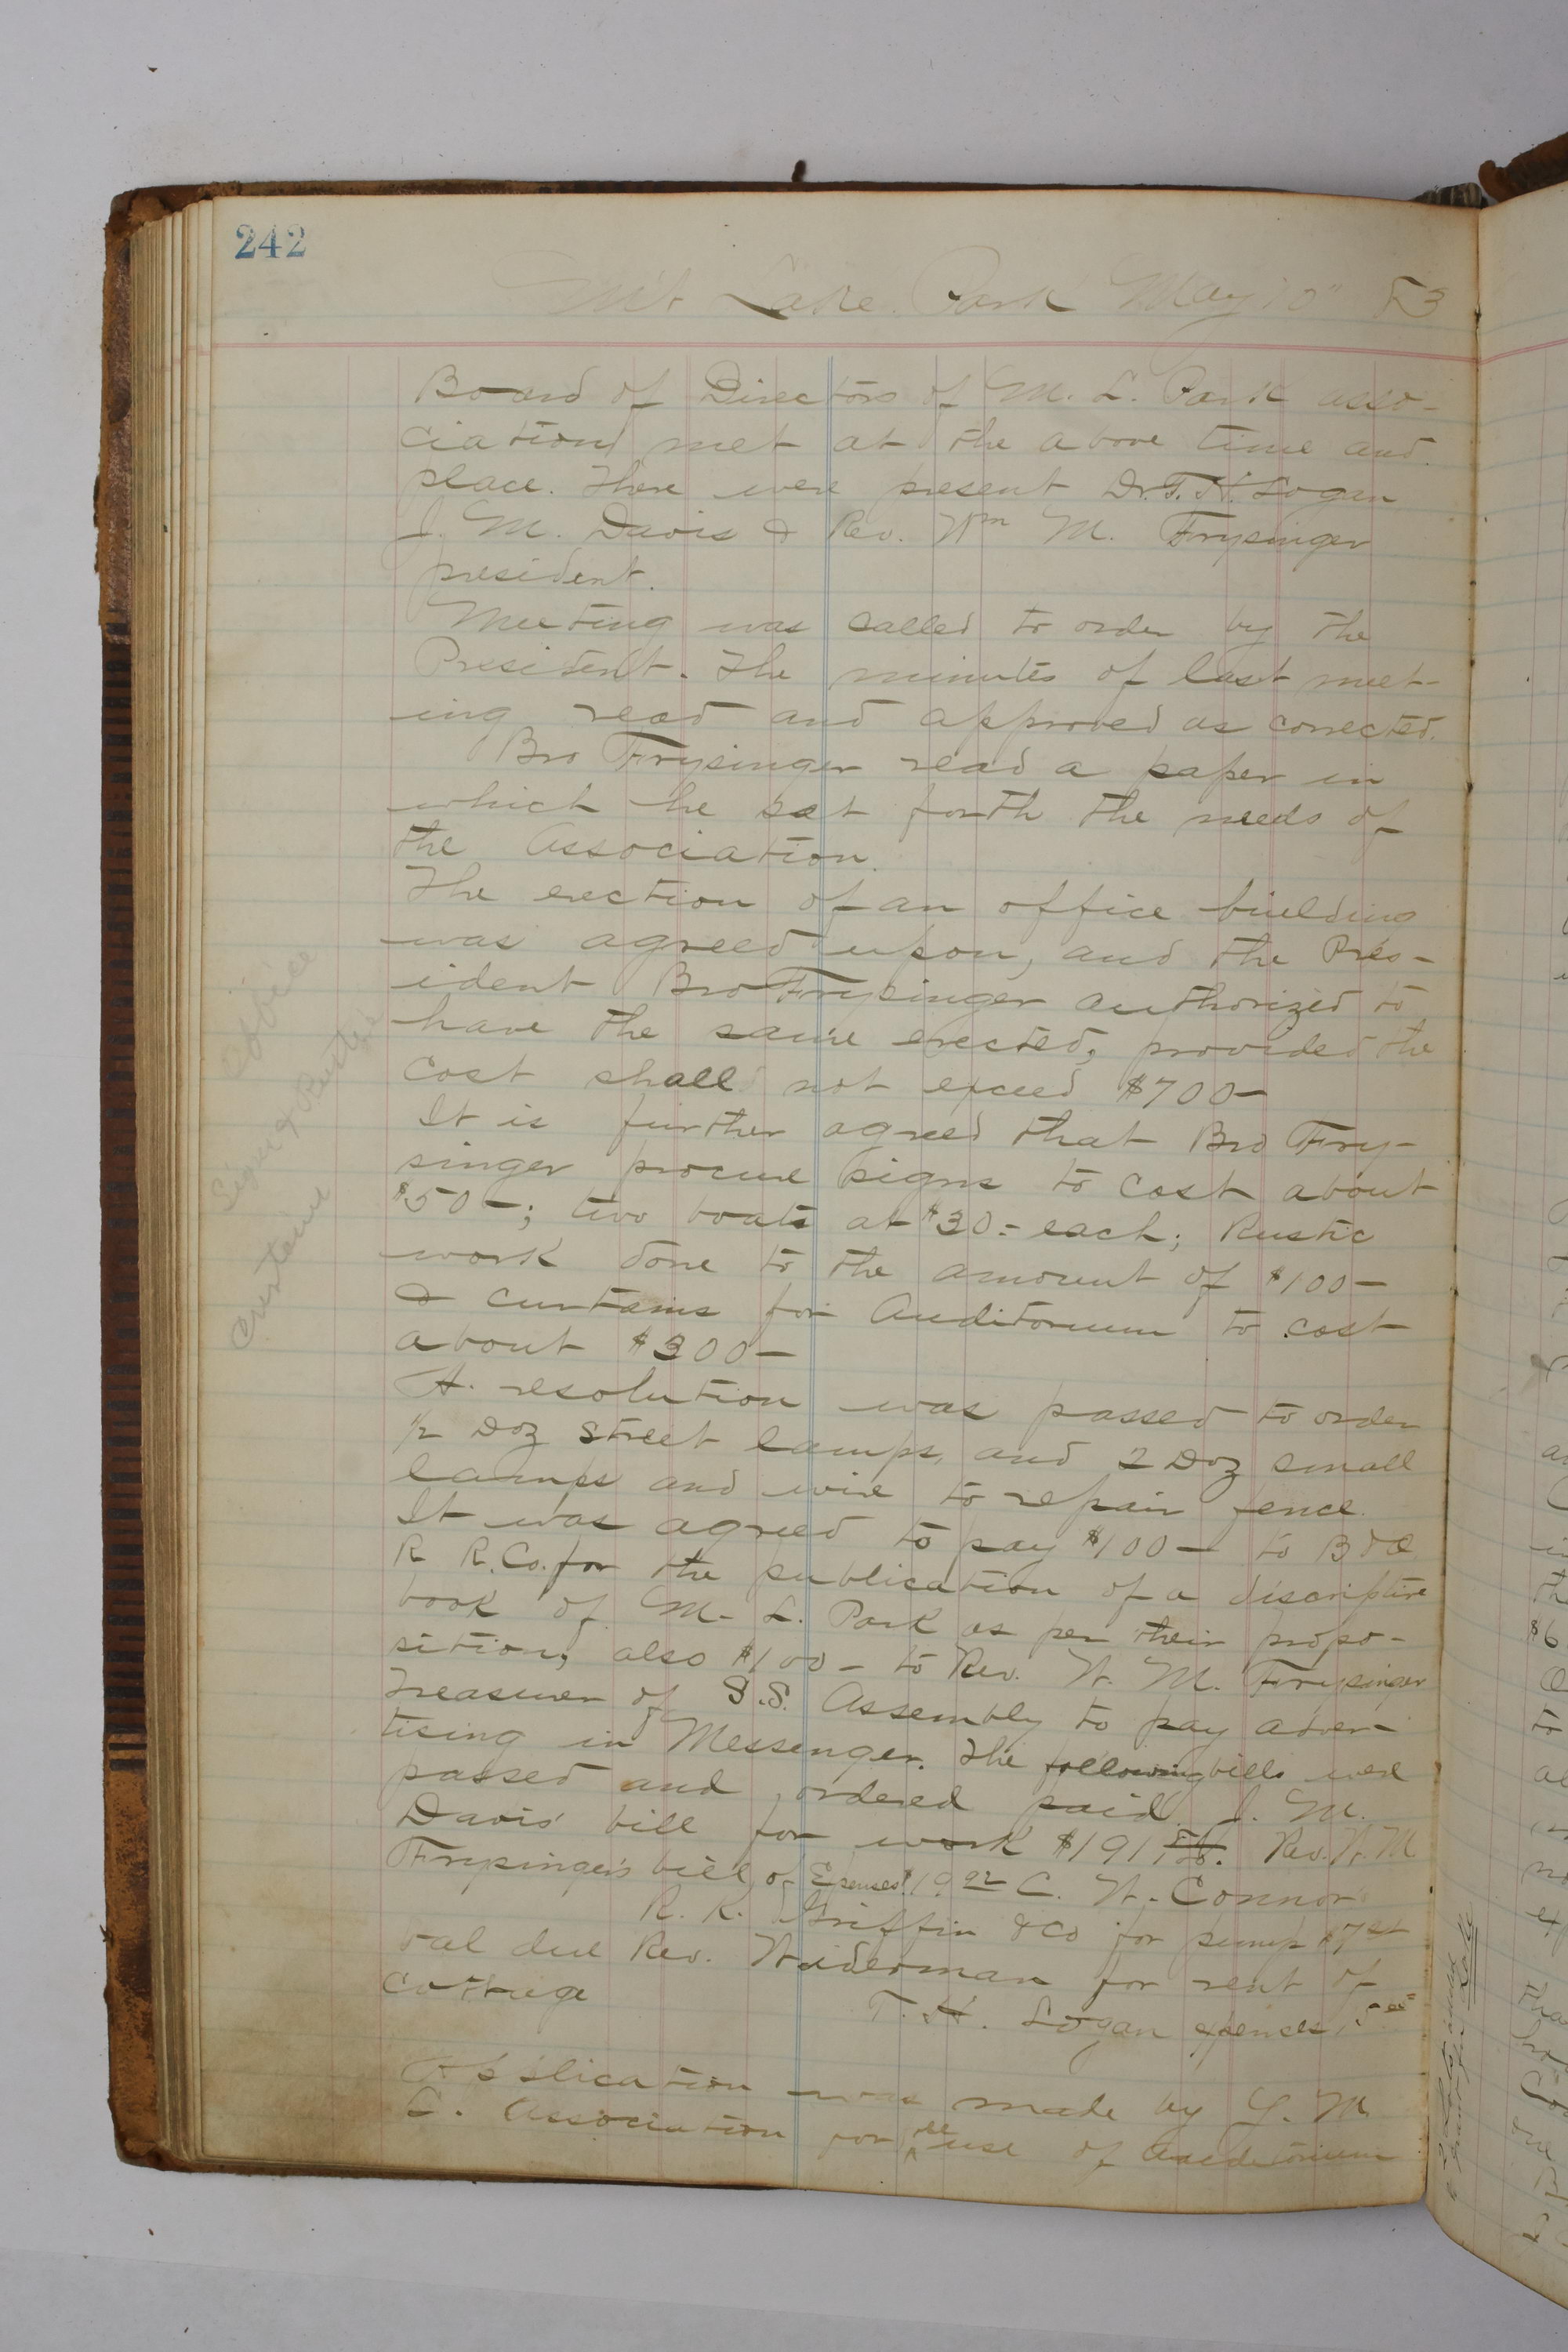 242
Mt Lake Park May 10" 83
Board of Directors of M. L. Park asso-
ciation met at the above time and
place. There were present Dr. T. H. Logan
J. M. Davis & Rev. Wm M. Frysinger
president.
Meeting was called to order by the
President. The minutes of last meet-
ing read and approved as corrected.
Bro Frysinger read a paper in
which he set forth the needs of
the Association.
The erection of an office building
was agreed upon, and the Pres-
ident Bro Frysinger authorized to
have the same erected, provided the
cost shall not exceed $700-
It is further agreed that Bro Fry-
singer procure signs to cost about
$50-; two boats at $30.- each; Rustic
work done to the amount of $100-
& curtains for Auditorium to cost
about $300-
A. resolution was passed to order
1/2 Doz street lamps, and 2 Doz small
lamps and wire to repair fence.
It was agreed to pay $100- to B & O
R R. Co. for the publication of a discriptive
book of M- L. Park as per their propo-
sition; also $100- to Rev. W. M. Frysinger
Treasurer of S.S. Assembly to pay adver-
tising in Messenger. The following bills were
passed and ordered paid. J. M.
Davis' bill for work $191 Rev. W. M
Frysinger's bill of Epenses C. W. Connor
R. R. Griffin & Co for pump $7
bal due Rev. Widerman for rent of
cottage
T. H. Logan expences
Application was made by Y. M
C. Association for the use of Auditorium
Office
Signs & Rustic
Curtains